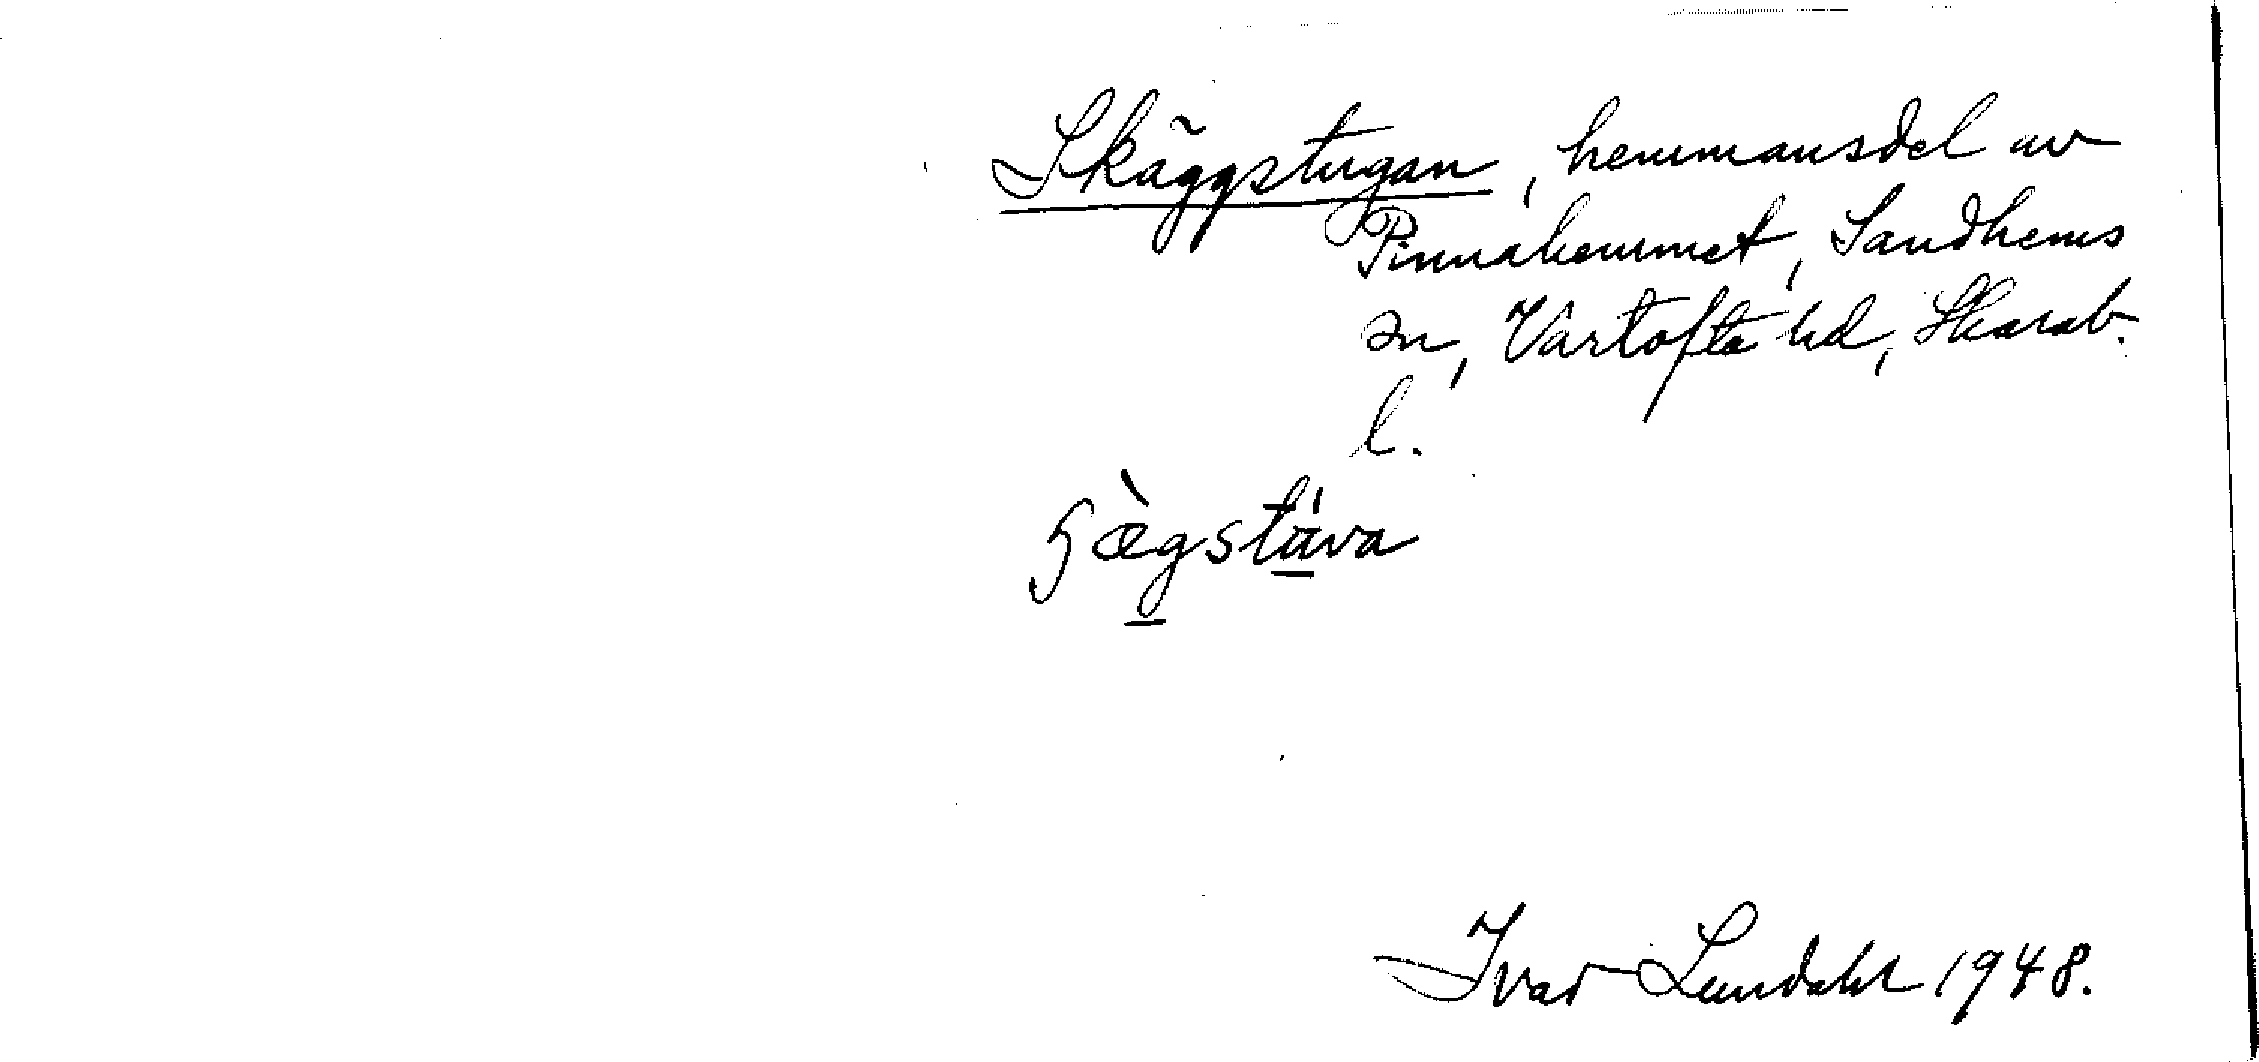 Skäggstugan, hemmansdel av
Pinnahemmet, Sandhems
sn, Vartofta hd, Skarab.
l.
ɧæ̀gstáva
Ivar Lundahl 1948.